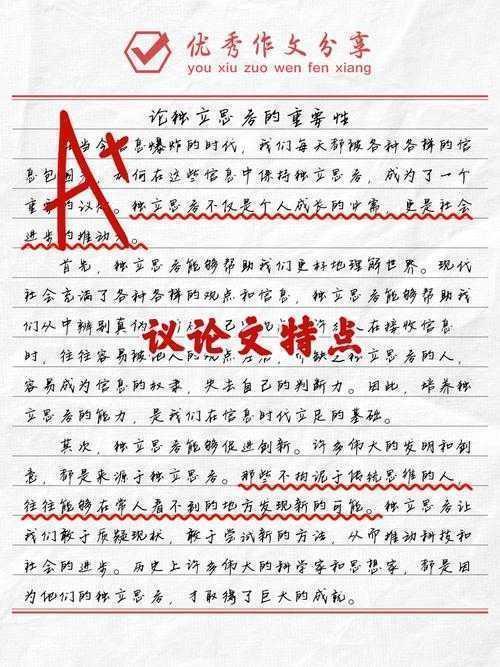 优秀作文分享
you xiu zuo wen fen xiang
论独立思考的重要性
当今信息爆炸的时代，我们每天都被各种各样的信
息包围，如何在这些信息中保持独立思考，成为了一个
重要的议。独立思考不仅是个人成长的必需，更是社会
进步的推动。
A+
首先，独立思考能够帮助我们更好地理解世界。现代
社会充满了各种各样的观点和信息，独立思考能够帮助我
们从中辨别真伪人在接收信息
议论文特点
时，往往容易被他人的观点左右，缺乏独立思考的人，
容易成为信息的奴隶，失去自己的判断力。因此，培养独
立思考的能力，是我们在信息时代立足的基础。
其次，独立思考能够促进创新。许多伟大的发明和创
意，都是来源于独立思考。那些不拘泥于传统思维的人，
往往能够在常人看不到的地方发现新的可能。独立思考让
我们敢于质疑现状，敢于尝试新的方法，从而推动科技和
社会的进步。历史上许多伟大的科学家和思想家，都是因
为他们的独立思考，才取得了巨大的成就。